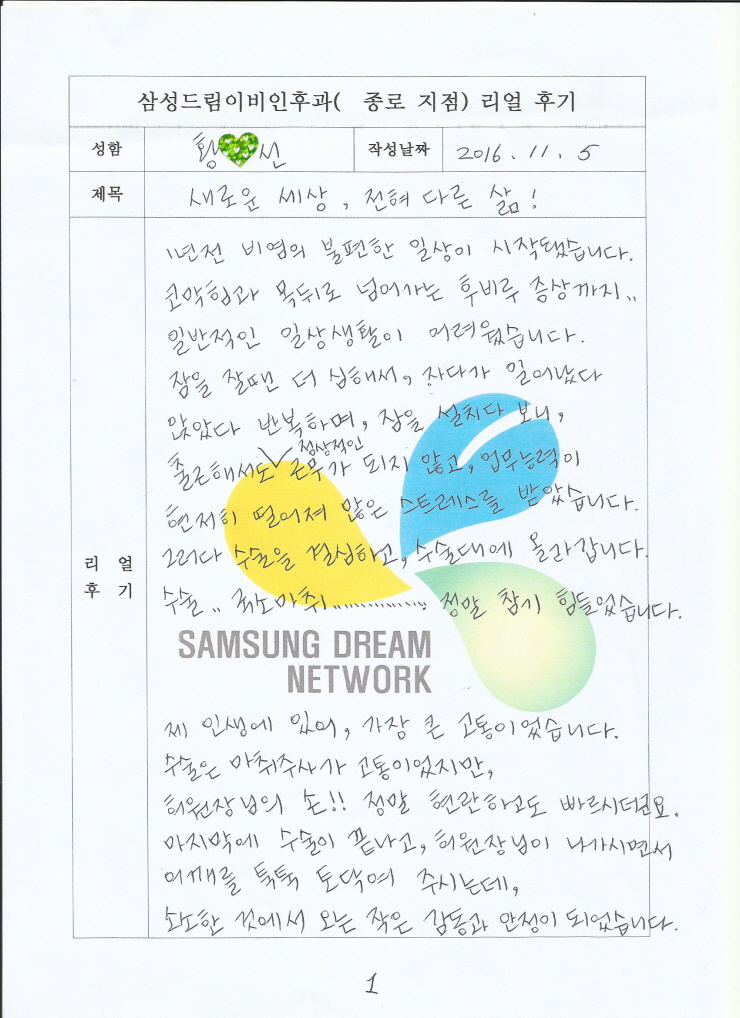 삼성드림이비인후과( 종로 지점) 리얼 후기
성함 황 선 작성날짜 2016. 11. 5
제목 새로운 세상, 전혀 다른 삶!
리 얼
후 기
1년전 비염의 불편한 일상이 시작됐습니다.
코막힘과 목뒤로 넘어가는 후비루 증상까지..
일반적인 일상생활이 어려웠습니다.
잠을 잘땐 더 심해서, 자다가 일어났다
앉았다 반복하며, 잠을 설치다 보니,
출근해서도 정상적인 근무가 되지 않고, 업무능력이
현저히 떨어져 많은 스트레스를 받았습니다.
그러다 수술을 결심하고, 수술대에 올라갑니다.
수술.. 국소마취.............. 정말 참기 힘들었습니다.
SAMSUNG DREAM
NETWORK
제 인생에 있어, 가장 큰 고통이었습니다.
수술은 마취주사가 고통이었지만,
허원장님의 손!! 정말 현란하고도 빠르시더군요.
마지막에 수술이 끝나고, 허원장님이 나가시면서
어깨를 툭툭 토닥여 주시는데,
소소한 것에서 오는 작은 감동과 안정이 되었습니다.
1